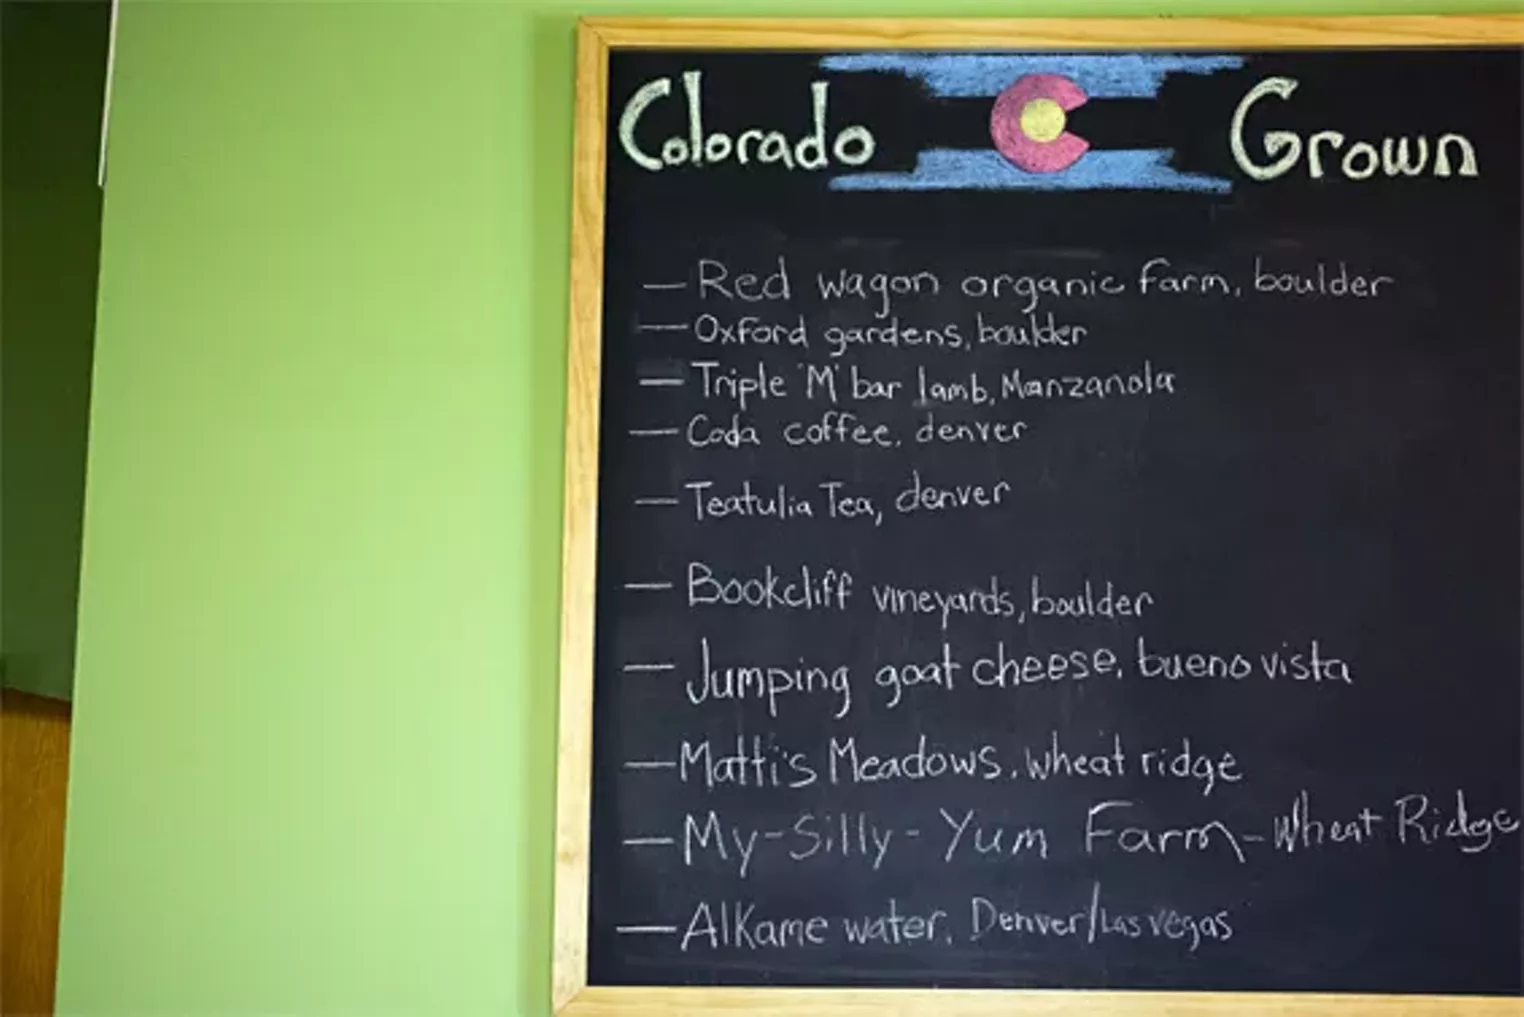 Colorado Grown
— Red wagon organic farm, boulder
— Oxford gardens, boulder
— Triple 'M' bar lamb, Manzanola
— Coda coffee, denver
— Teatulia Tea, denver
— Bookcliff vineyards, boulder
— Jumping goat cheese, bueno vista
— Matti's Meadows, wheat ridge
— My-Silly-Yum Farm-Wheat Ridge
— Alkame water, Denver/Las vegas